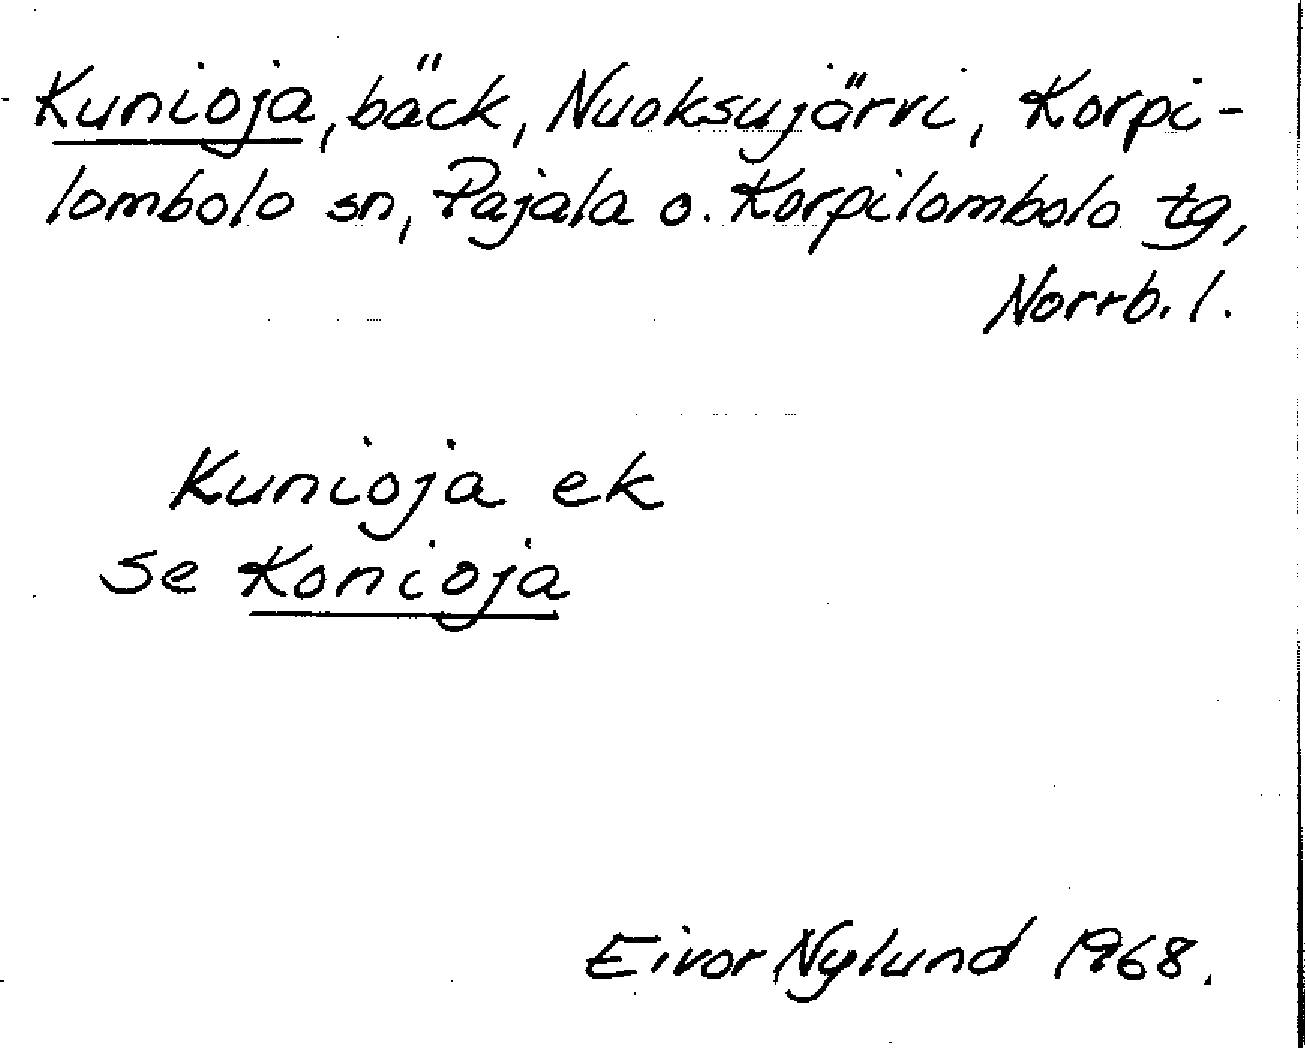 Kunioja, bäck, Nuoksujärvi, Korpi-
lombolo sn, Pajala o. Korpilombolo tg,
Norrb. l.
Kunioja ek
se Konioja
Eivor Nylund 1968.